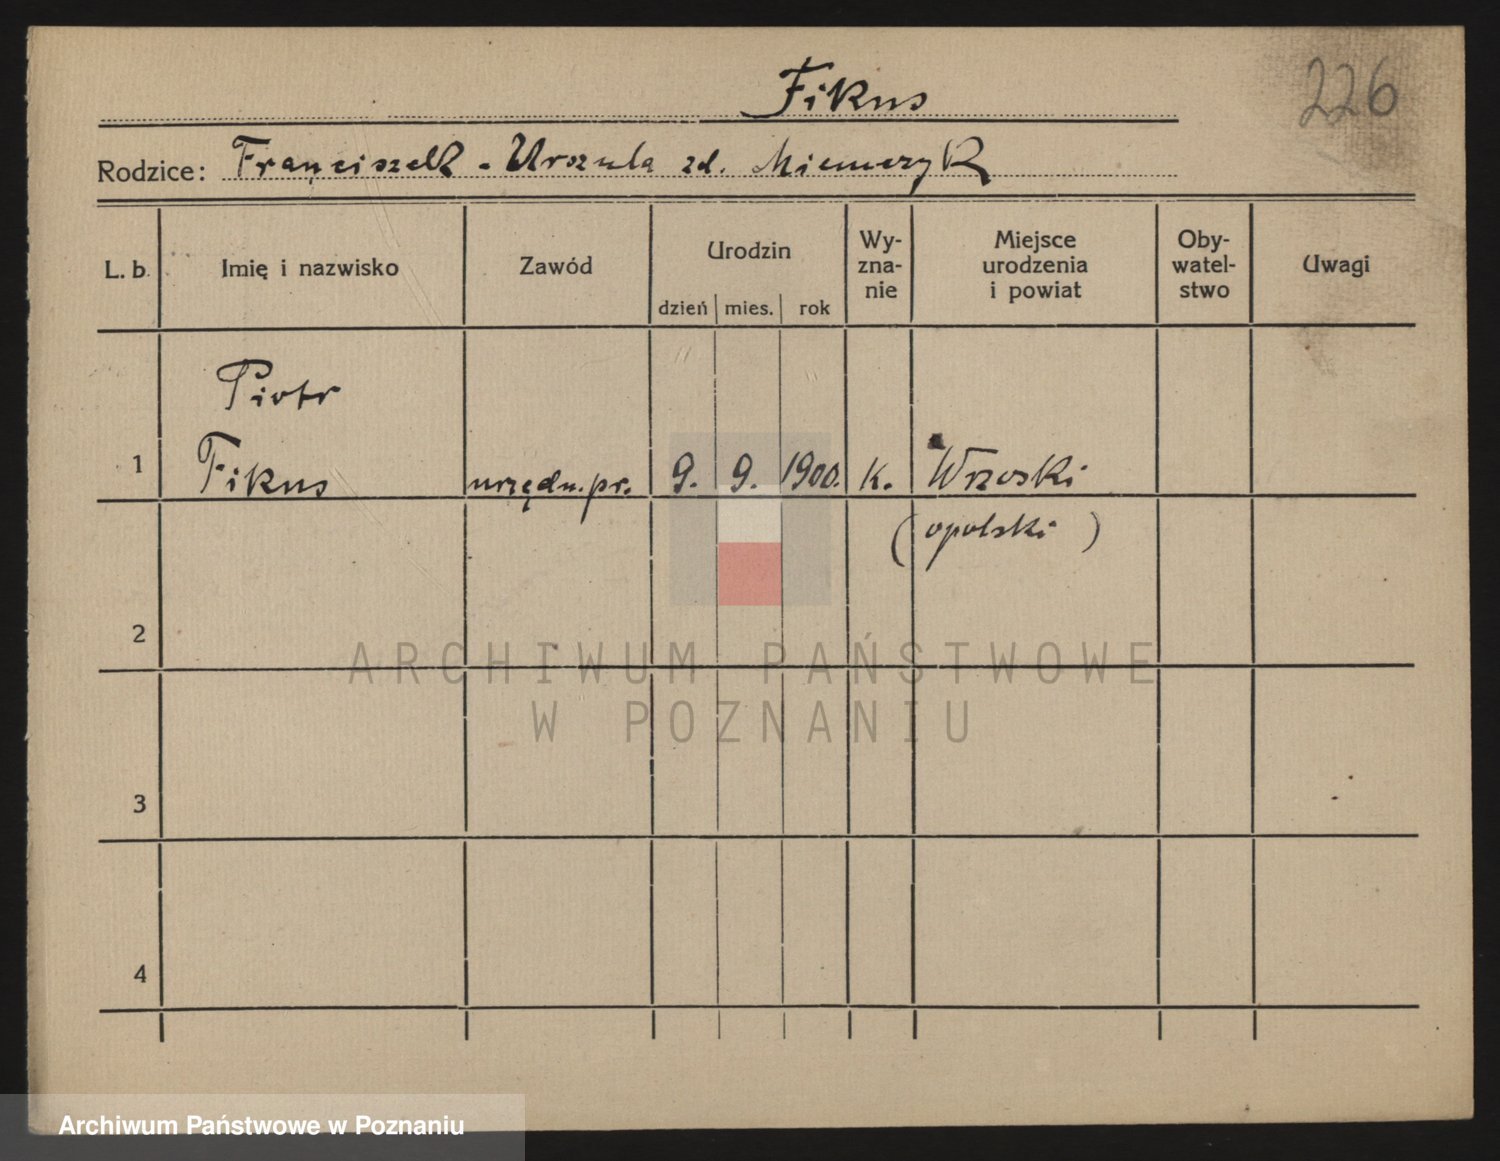 Fikus
226
Rodzice: Franciszek - Urszula zd. Niemczyk
L. b. Imię i nazwisko Zawód Urodzin dzień mies. rok Wy-zna-nie Miejsce urodzenia i powiat Oby-watel-stwo Uwagi
Piotr
1 Fikus urzędn. pr. 9. 9. 1900. k. Wrzoski
(opolski)
2
ARCHIWUM PAŃSTWOWE
W POZNANIU
3
4
Archiwum Państwowe w Poznaniu